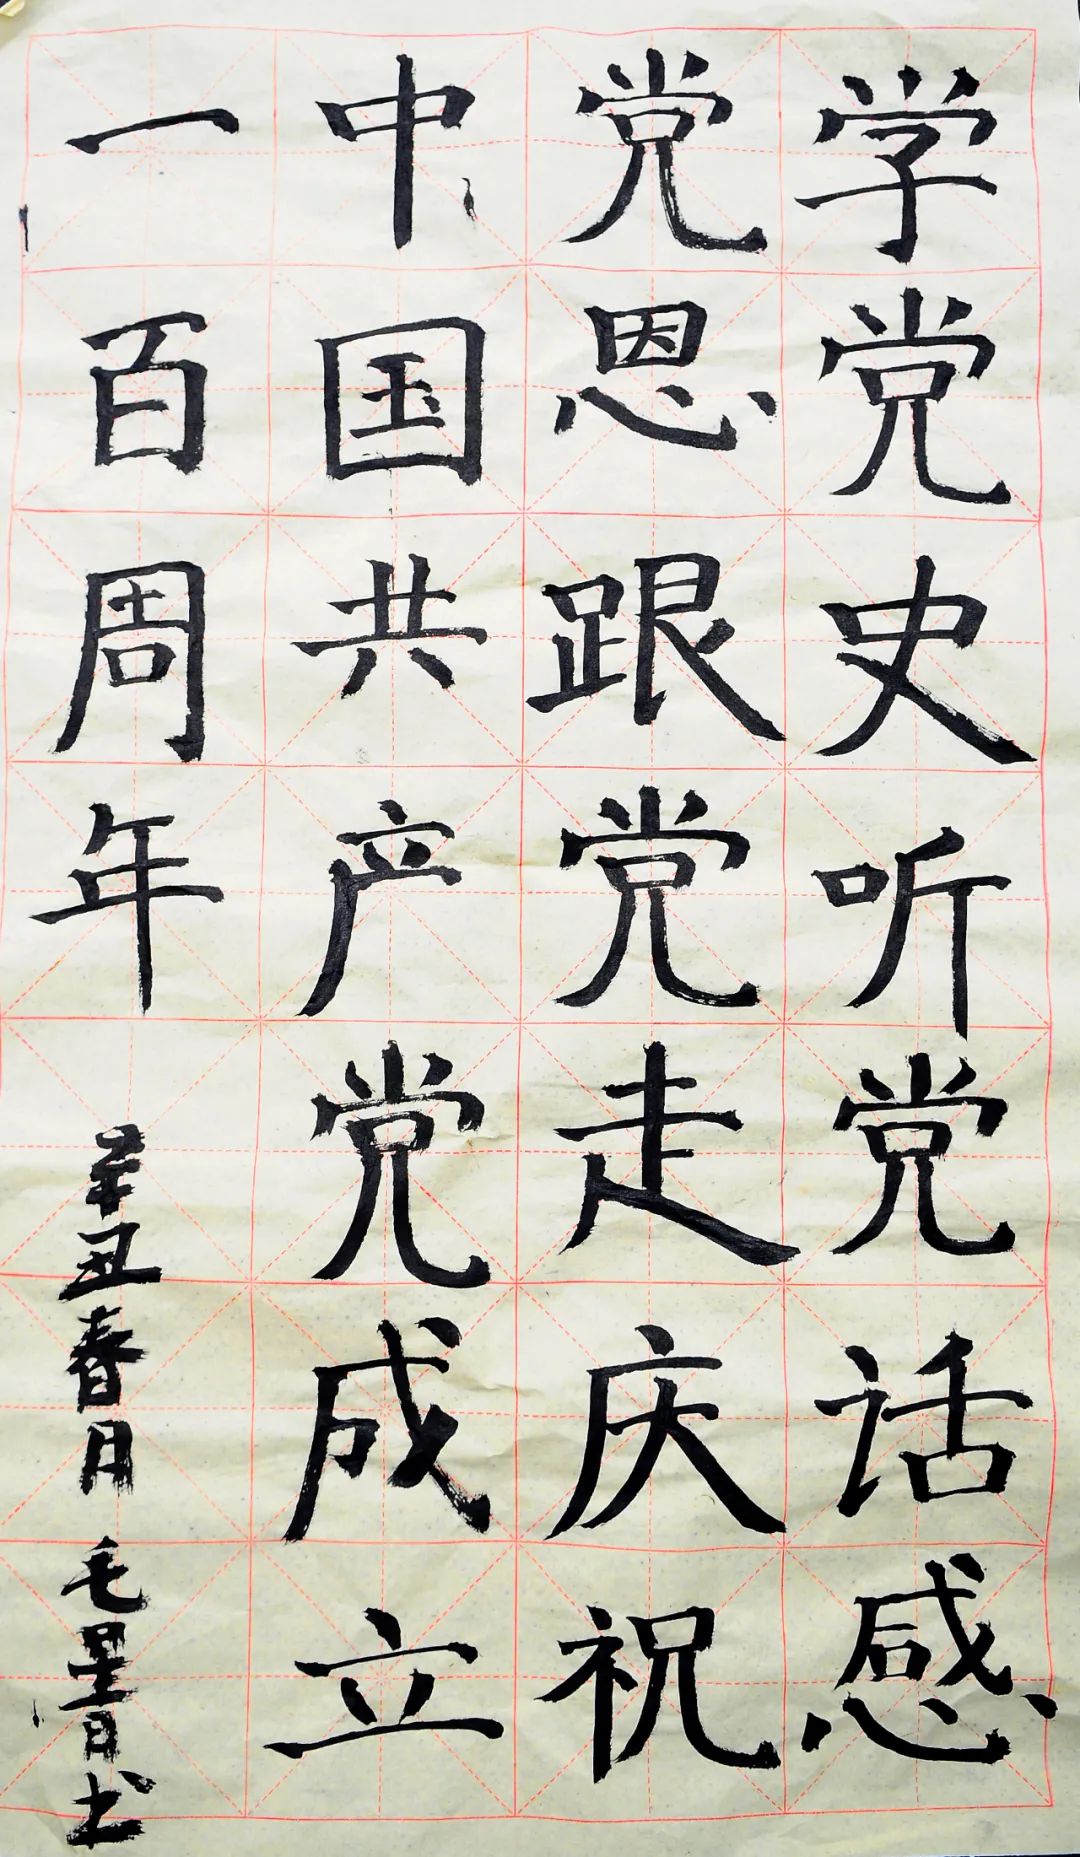 学党史听党话感
党恩跟党走庆祝
中国共产党成立
一百周年
辛丑春月 毛星日书